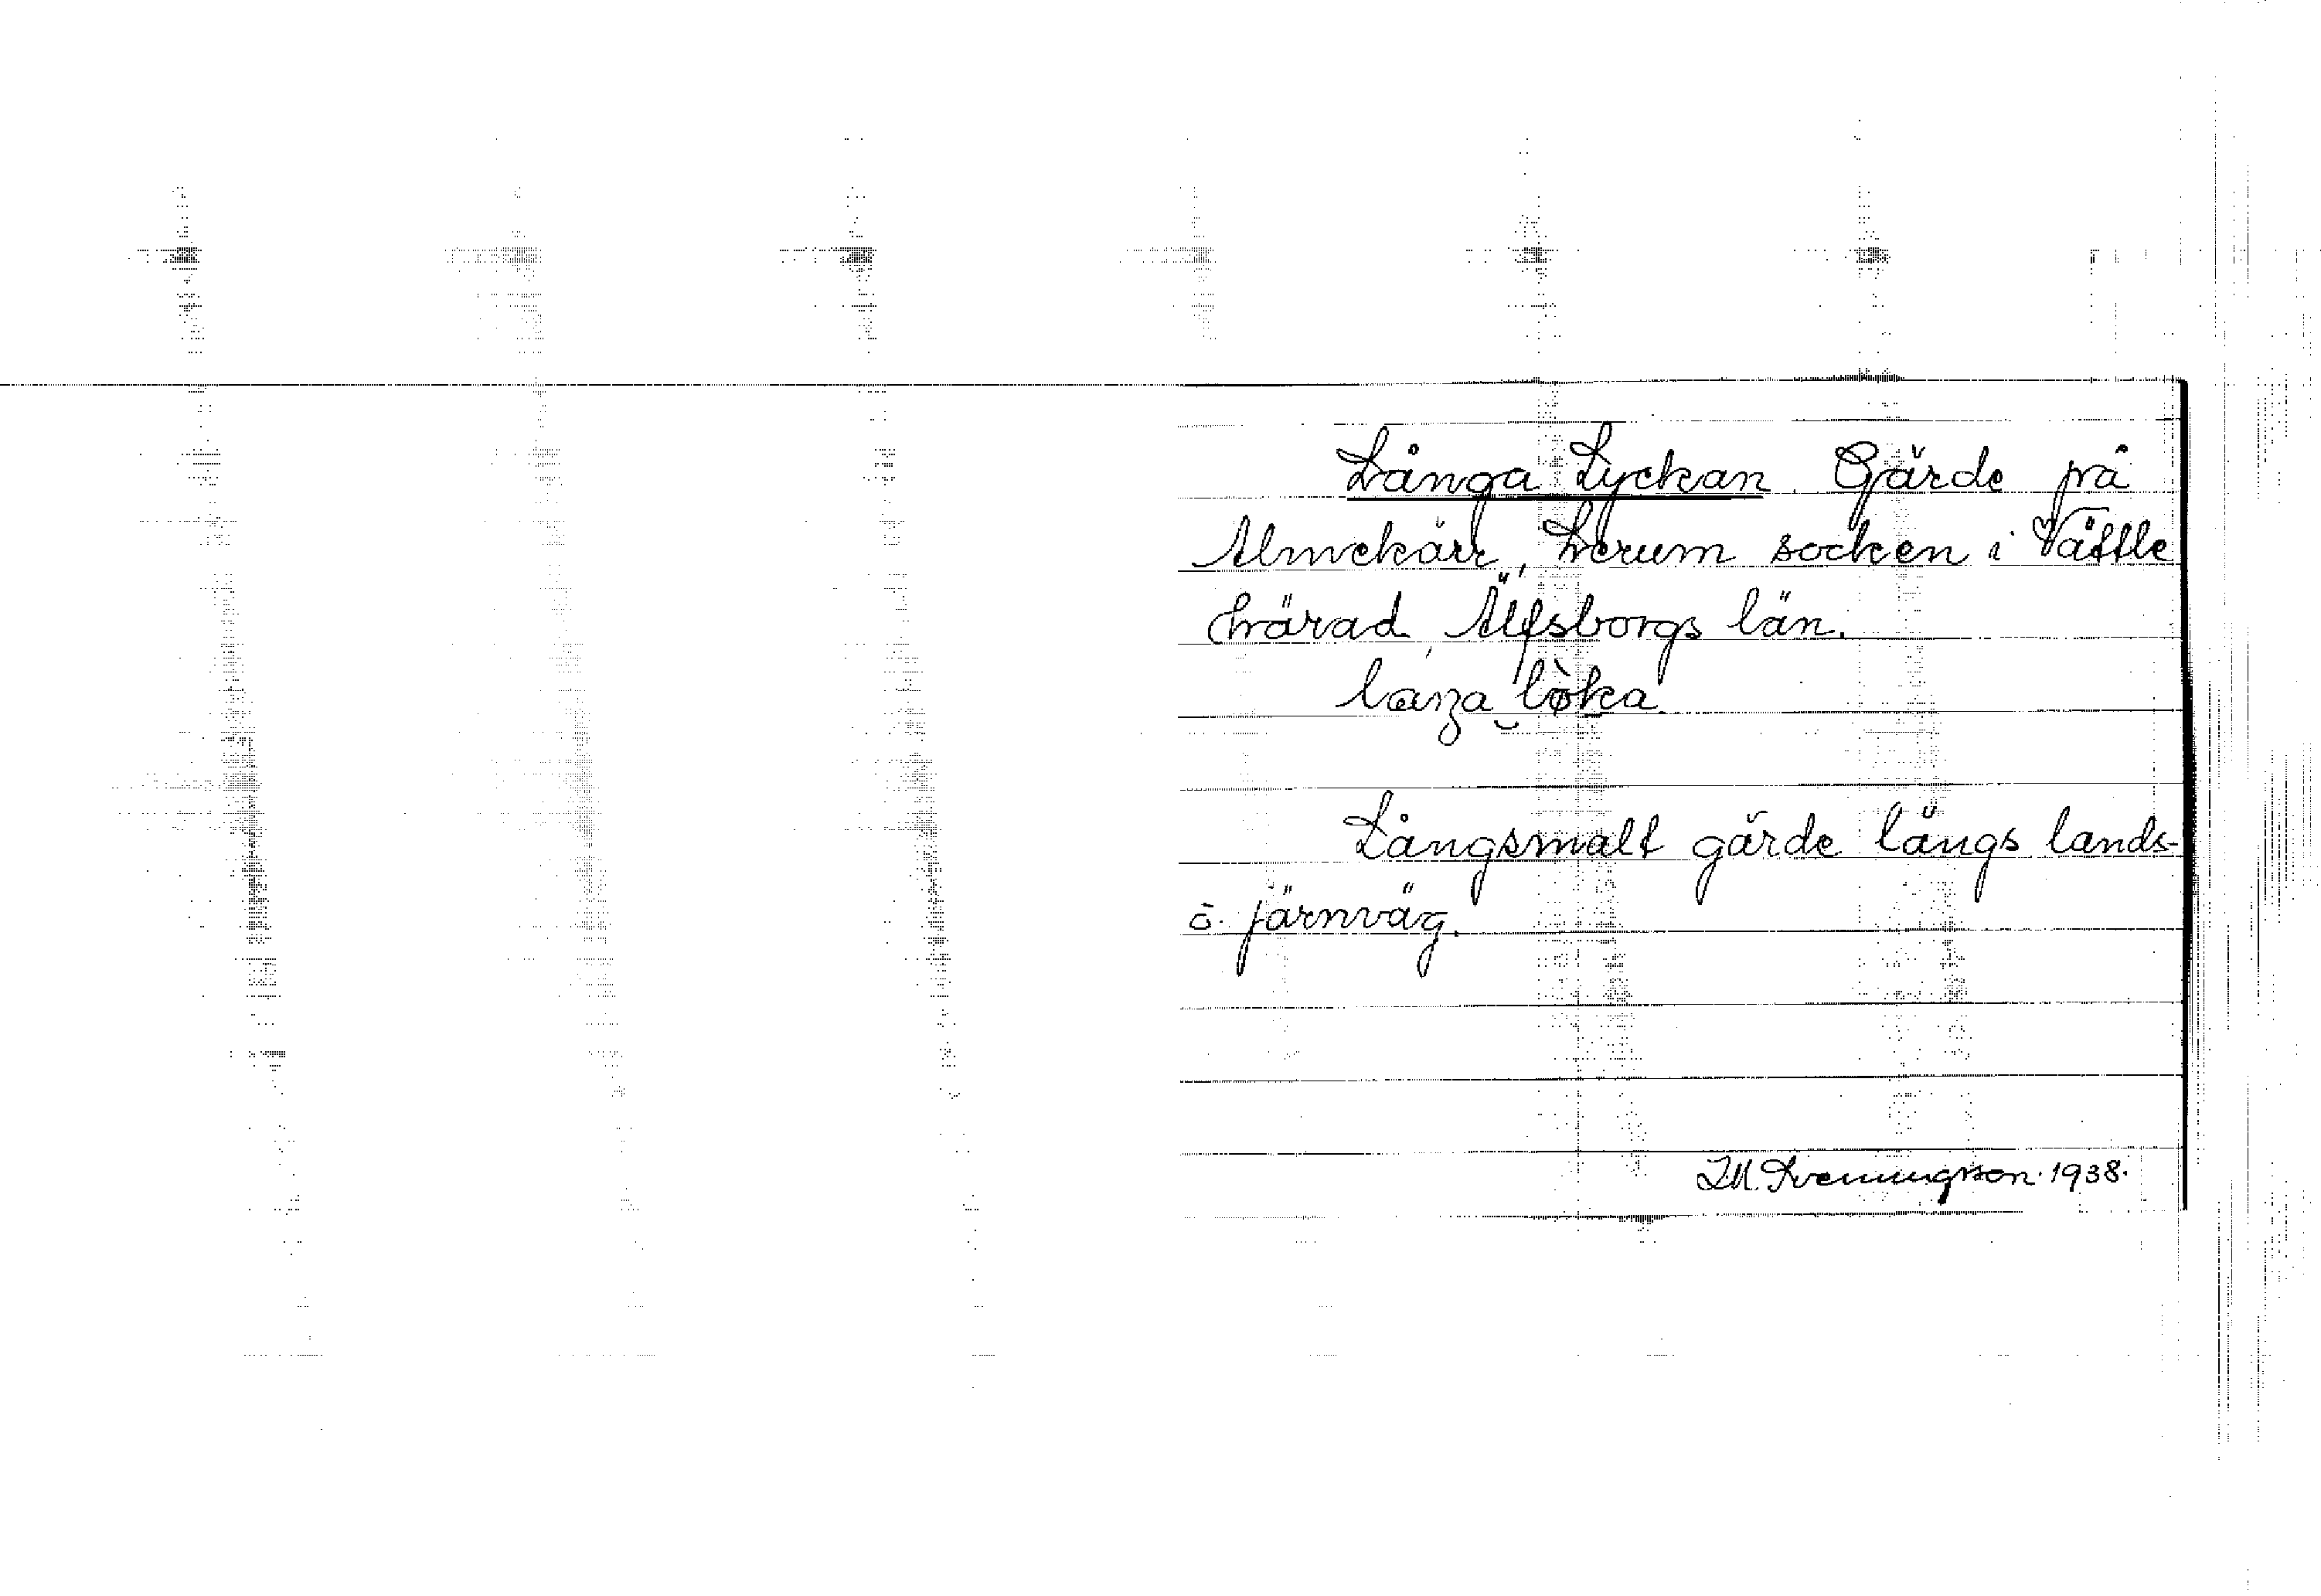 Långa Lyckan. Gärde på
Almekärr, Lerum socken i Vättle
härad, Älfsborgs län.
laŋa løka
Långsmalt gärde längs lands-
o. järnväg.
I.M. Svenungsson. 1938.